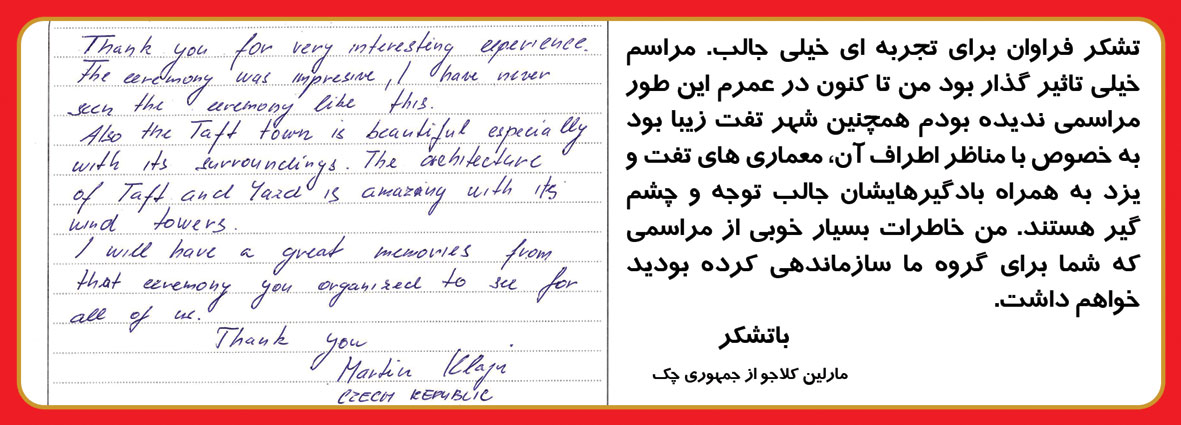 Thank you for very interesting experience.
The ceremony was impresive, I have never
seen the ceremony like this.
Also the Taft town is beautiful especially
with its surroundings. The architecture
of Taft and Yazd is amazing with its
wind towers.
I will have a great memories from
that ceremony you organized to see for
all of us.
Thank you
Martin
CZECH REPUBLIC
تشکر فراوان برای تجربه ای خیلی جالب. مراسم
خیلی تاثیر گذار بود من تا کنون در عمرم این طور
مراسمی ندیده بودم همچنین شهر تفت زیبا بود
به خصوص با مناظر اطراف آن، معماری های تفت و
یزد به همراه بادگیرهایشان جالب توجه و چشم
گیر هستند. من خاطرات بسیار خوبی از مراسمی
که شما برای گروه ما سازماندهی کرده بودید
خواهم داشت.
باتشکر
مارلین کلاجو از جمهوری چک